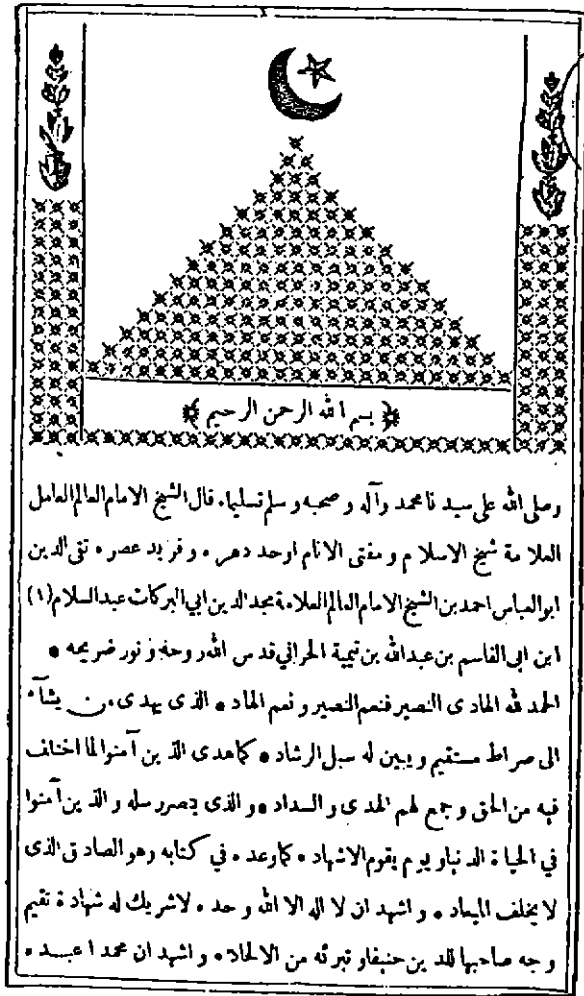 ﴿ بسم الله الرحمن الرحيم ﴾
وصلى الله على سيد نا محمد وآله وصحبه و سلم تسليما. قال الشيخ الامام العالم العامل
العلا مة شيخ الاسلا م و مفتى الانام اوحد دهره و فريد عصره تقى الدين
ابوالعباس احمد بن الشيخ الامام العالم العلامة مجد الدين ابي البركات عبدالسلام (١)
ابن ابى القاسم بن عبدالله بن تيمية الحراني قدس الله روحه و نور ضريحه *
الحمد لله الهادى النصير فنعم النصير و نعم الهاد * الذى يهدى من يشآء
الى صراط مستقيم و يبين له سبل الرشاد * كما هدى الذين آمنوا لما اختلف
فيه من الحق و جمع لهم الهدى و السداد * و الذى ينصر رسله و الذين آمنوا
في الحياة الدنيا و يوم يقوم الاشهاد * كما وعده في كتابه وهو الصادق الذى
لا يخلف الميعاد * و اشهد ان لا اله الا الله وحده لاشريك له شهادة تقيم
وجه صاحبها للدين حنيفا و تبرئه من الالحاد * و اشهد ان محمدا عبده